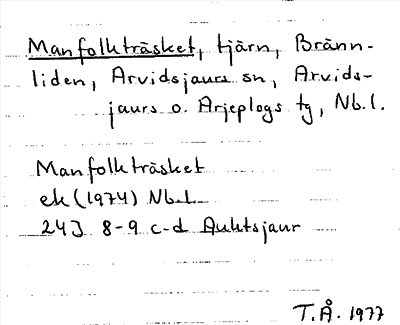 Manfolkträsket, tjärn, Bränn-
liden, Arvidsjaurs sn, Arvids-
jaurs o. Arjeplogs tg, Nb.l.
Manfolkträsket
ek (1974) Nb.l.
24J 8-9 c-d Auktsjaur
T.Å. 1977